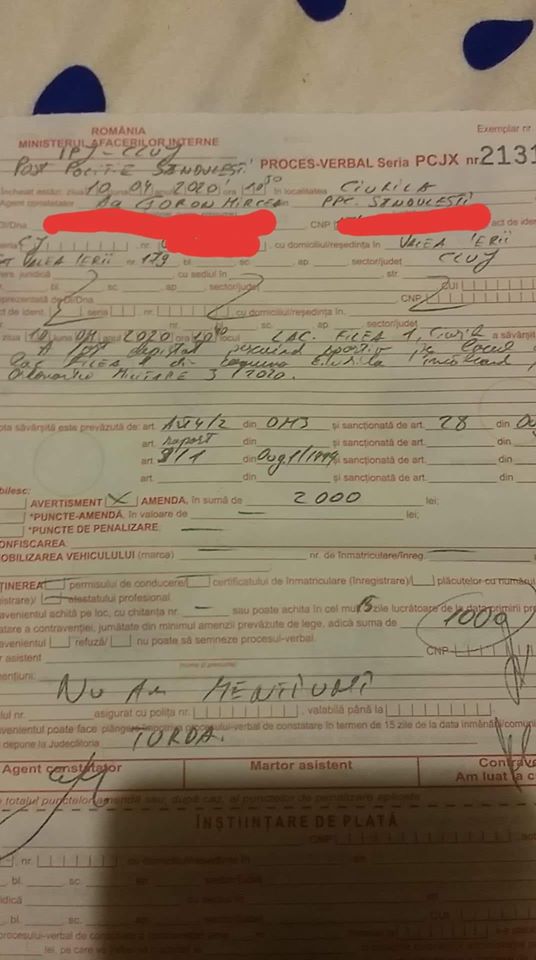 ROMÂNIA
Exemplar nr
MINISTERUL AFACERILOR INTERNE
IPJ - CLUJ
POST POLITIE SĂNDULEȘTI PROCES-VERBAL Seria PCJX nr 2131
Încheiat astăzi: ziua 10 luna 04 anul 2020 ora 10 50 în localitatea CIURILA
Agent constatator Ag GORON MIRCEA PPC. SĂNDULEȘTI
Dl/Dna CNP act de iden
seria CJ nr. , cu domiciliul/reşedinţa în VALEA IERII
VALEA IERII nr 179 bl. sc. ap sector/judeţ CLUJ
Pers. juridică , cu sediul în str.
nr. , bl. sc. ap. sector/judeţ CUI
reprezentată de Dl/Dna CNP
act de ident. seria nr. cu domiciliul/reşedinţa în
nr. bl. sc. ap. sector/judeţ
ziua 10 luna 04 anul 2020 ora 10 40 locul LAC. FILEA 1, a săvârşit
A fost depistat pescuind sportiv pe lacul
lac FILEA 1 din comuna
Ordonanta MILITARE 3/2020.
pta săvârşită este prevăzută de: art. Art 4/2 din OM3 şi sancţionată de art. 28 din
art. raport din şi sancţionată de art. din
art. 9/1 din Oug 1/1999 şi sancţionată de art. din
art. din şi sancţionată de art. din
bilesc:
AVERTISMENT X AMENDA, în sumă de 2000 lei;
*PUNCTE-AMENDĂ, în valoare de — lei;
*PUNCTE DE PENALIZARE: —
CONFISCAREA: —
MOBILIZAREA VEHICULULUI (marca) — nr. de înmatriculare/înreg. —
ŢINEREA permisului de conducere/ certificatului de înmatriculare (înregistrare)/ plăcuţelor cu numărul
gistrare)/ atestatului profesional.
avenientul achită pe loc, cu chitanţa nr. — sau poate achita în cel mult 15 zile lucrătoare de la data primirii pro
tatare a contravenţiei, jumătate din minimul amenzii prevăzute de lege, adică suma de 1000
avenientul refuză/ nu poate să semneze procesul-verbal.
r asistent CNP
(nume şi prenume)
enţiuni: NU AM MENTIUNI
ulul nr. asigurat cu poliţa nr. , valabilă până la
avenientul poate face plângere împotriva procesului-verbal de constatare în termen de 15 zile de la data înmânării/comuni
depune la Judecătoria TURDA.
Agent constatator Martor asistent Contrave
Am luat la c
totalul punctelor amendă sau, după caz, al punctelor de penalizare aplicate
ÎNŞTIINŢARE DE PLATĂ
CNP act
nr. cu domiciliul/reşedinţa în
bl. sc. ap. sector/judeţ
idică cu sediul în str.
bl. sc. ap. sector/judeţ CUI
lei, pe care va